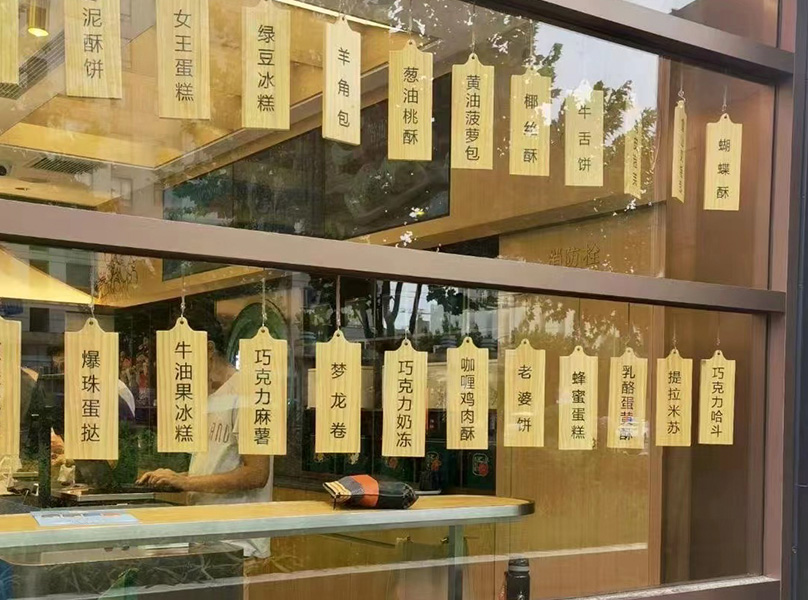 泥酥饼
女王蛋糕
绿豆冰糕
羊角包
葱油桃酥
黄油菠萝包
椰丝酥
牛舌饼
蝴蝶酥
消防栓
爆珠蛋挞
牛油果冰糕
巧克力麻薯
梦龙卷
巧克力奶冻
咖喱鸡肉酥
老婆饼
蜂蜜蛋糕
乳酪蛋黄酥
提拉米苏
巧克力哈斗